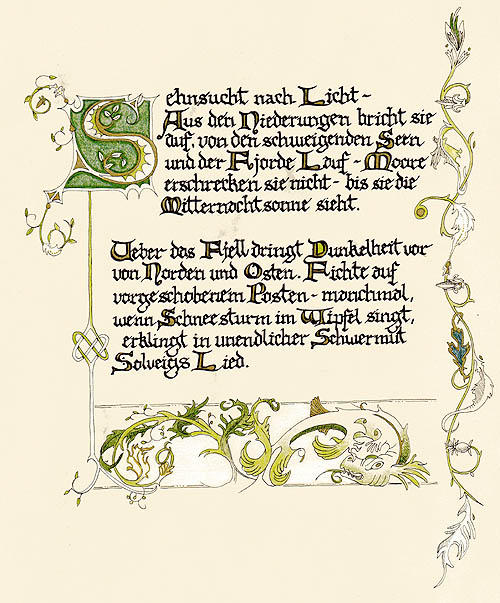 Sehnsucht nach Licht -
Aus den Niederungen bricht sie
auf, von den schweigenden Seen
und der Fjorde Lauf - Moore
erschrecken sie nicht - bis sie die
Mitternachtsonne sieht.
Ueber das Fjell dringt Dunkelheit vor
von Norden und Osten. Fichte auf
vorgeschobenem Posten - manchmal,
wenn Schneesturm im Wipfel singt,
erklingt in unendlicher Schwermut
Solveigs Lied.